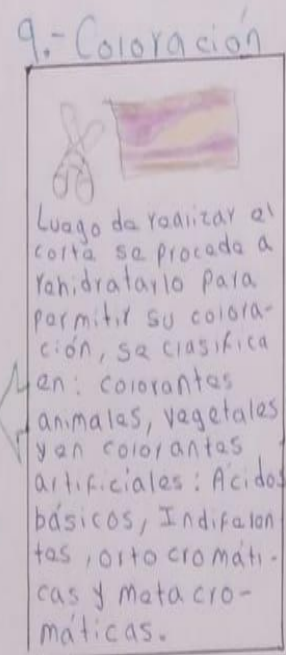 9.- Coloración
Luego de realizar el
corte se procede a
rehidratarlo para
permitir su colora-
ción, se clasifica
en: colorantes
animales, vegetales
y en colorantes
artificiales: Ácidos
básicos, Indifelon
tes, orto cromáti-
cas y meta cro-
máticas.